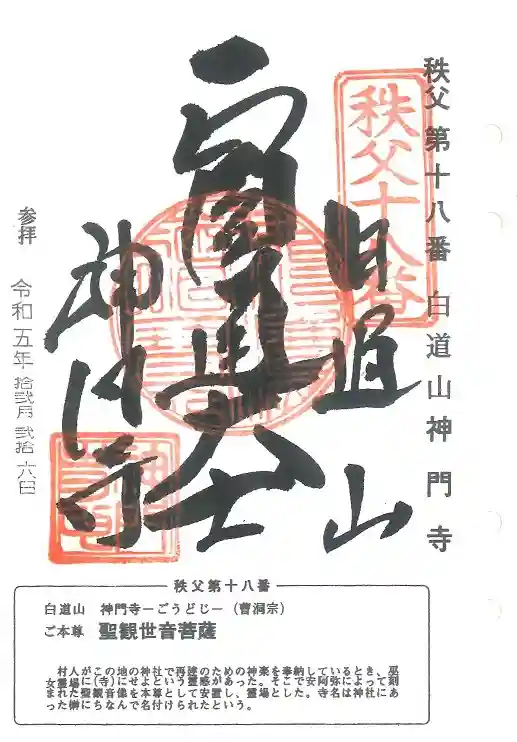 秩父 第十八番 白道山神門寺
秩父十八番
白道山
神門寺
参拝 令和五年 拾弐月 弐拾六日
秩父第十八番
白道山 神門寺ーごうどじー(曹洞宗)
ご本尊 聖観世音菩薩
村人がこの地の神社で再建のための神楽を奉納しているとき、巫
女霊場に(寺)にせよという霊感があった。そこで安阿弥によって刻
まれた聖観音像を本尊として安置し、霊場とした。寺名は神社にあ
った榊にちなんで名付けられたという。